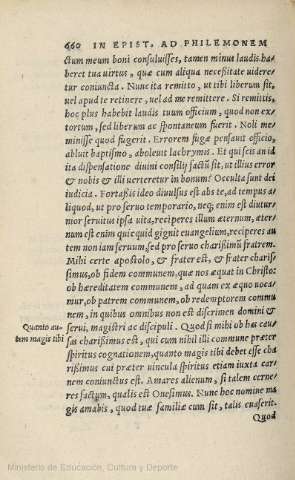 660 IN EPIST. AD PHILEMONEM
ctum meum boni consuluisses, tamen minus laudis ha-
beret tua virtus, quæ cum aliqua necessitate uidere-
tur coniuncta. Nunc ita remitto, ut tibi liberum sit,
uel apud te retinere, uel ad me remittere. Si remittis,
hoc plus habebit laudis tuum officium, quod non ex-
tortum, sed liberum ac spontaneum fuerit. Noli me-
minisse quod fugerit. Errorem fugæ pensant officio,
abluit baptismo, aboleuit lachrymis. Et qui scis an id
ita dispensatione diuini consilij factũ sit, ut illius error
& nobis & illi uerteretur in bonum? Occulta sunt dei
iudicia. Fortassis ideo diuulsus est abs te, ad tempus a-
liquod, ut pro seruo temporario, neq; enim est diutur-
nior seruitus ipsa uita, reciperes illum æternum, æter-
num est enim quicquid gignit euangelium, reciperes au
tem non iam seruum, sed pro seruo charissimũ fratrem.
Mihi certe apostolo, & frater est, & frater charis-
simus, ob fidem communem, quæ nos æquat in Christo:
ob hæreditatem communem, ad quam ex æquo uoca-
mur, ob patrem communem, ob redemptorem commu
nem, in quibus omnibus non est discrimen domini &
Quanto au- serui, magistri ac discipuli. Quod si mihi ob has cau-
tem magis tibi sas charissimus est, qui cum nihil illi commune præter
spiritus cognationem, quanto magis tibi debet esse cha
rissimus cui præter uincula spiritus etiam iuxta car-
nem coniunctus est. Amares alienum, si talem cerne-
res factum, qualis est Onesimus. Nunc hoc nomine ma
gis amabis, quod tuæ familiæ cum sit, talis euaserit.
Quod
Ministerio de Educación, Cultura y Deporte